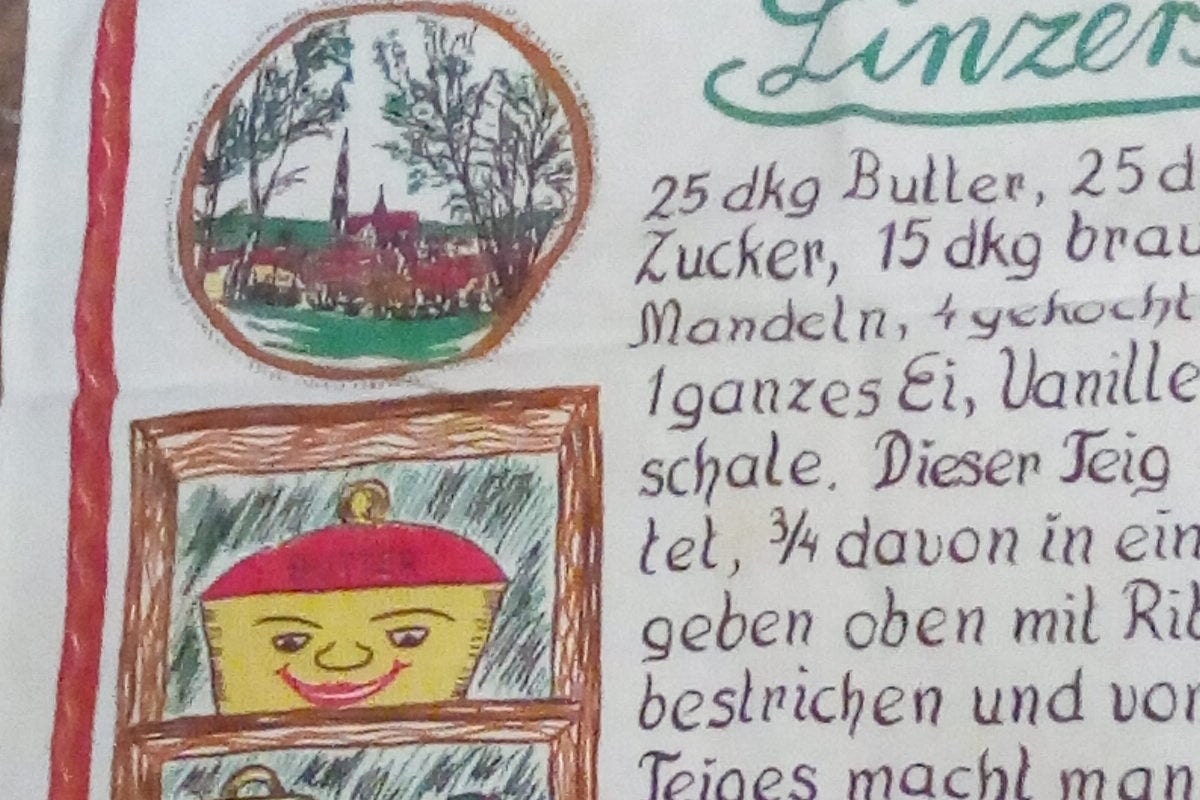 Linzers
25 dkg Butter, 25 d
Zucker, 15 dkg brau
Mandeln, 4 gekocht
1 ganzes Ei, Vanille
schale. Dieser Teig
tet, ¾ davon in ein
geben oben mit Rib
bestrichen und vor
Teiges macht man
BUTTER